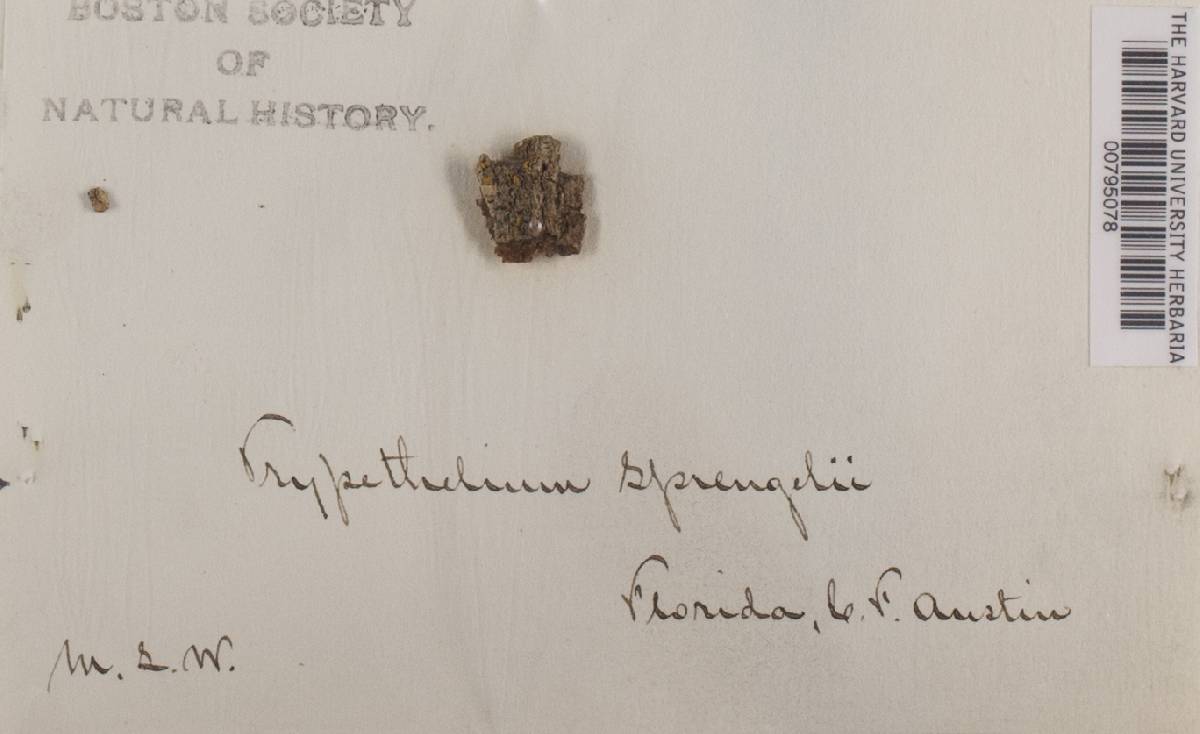 BOSTON SOCIETY
OF
NATURAL HISTORY.
THE HARVARD UNIVERSITY HERBARIA
00795078
Trypethelium Sprengelii
Florida, C. F. Austin
M. S. W.